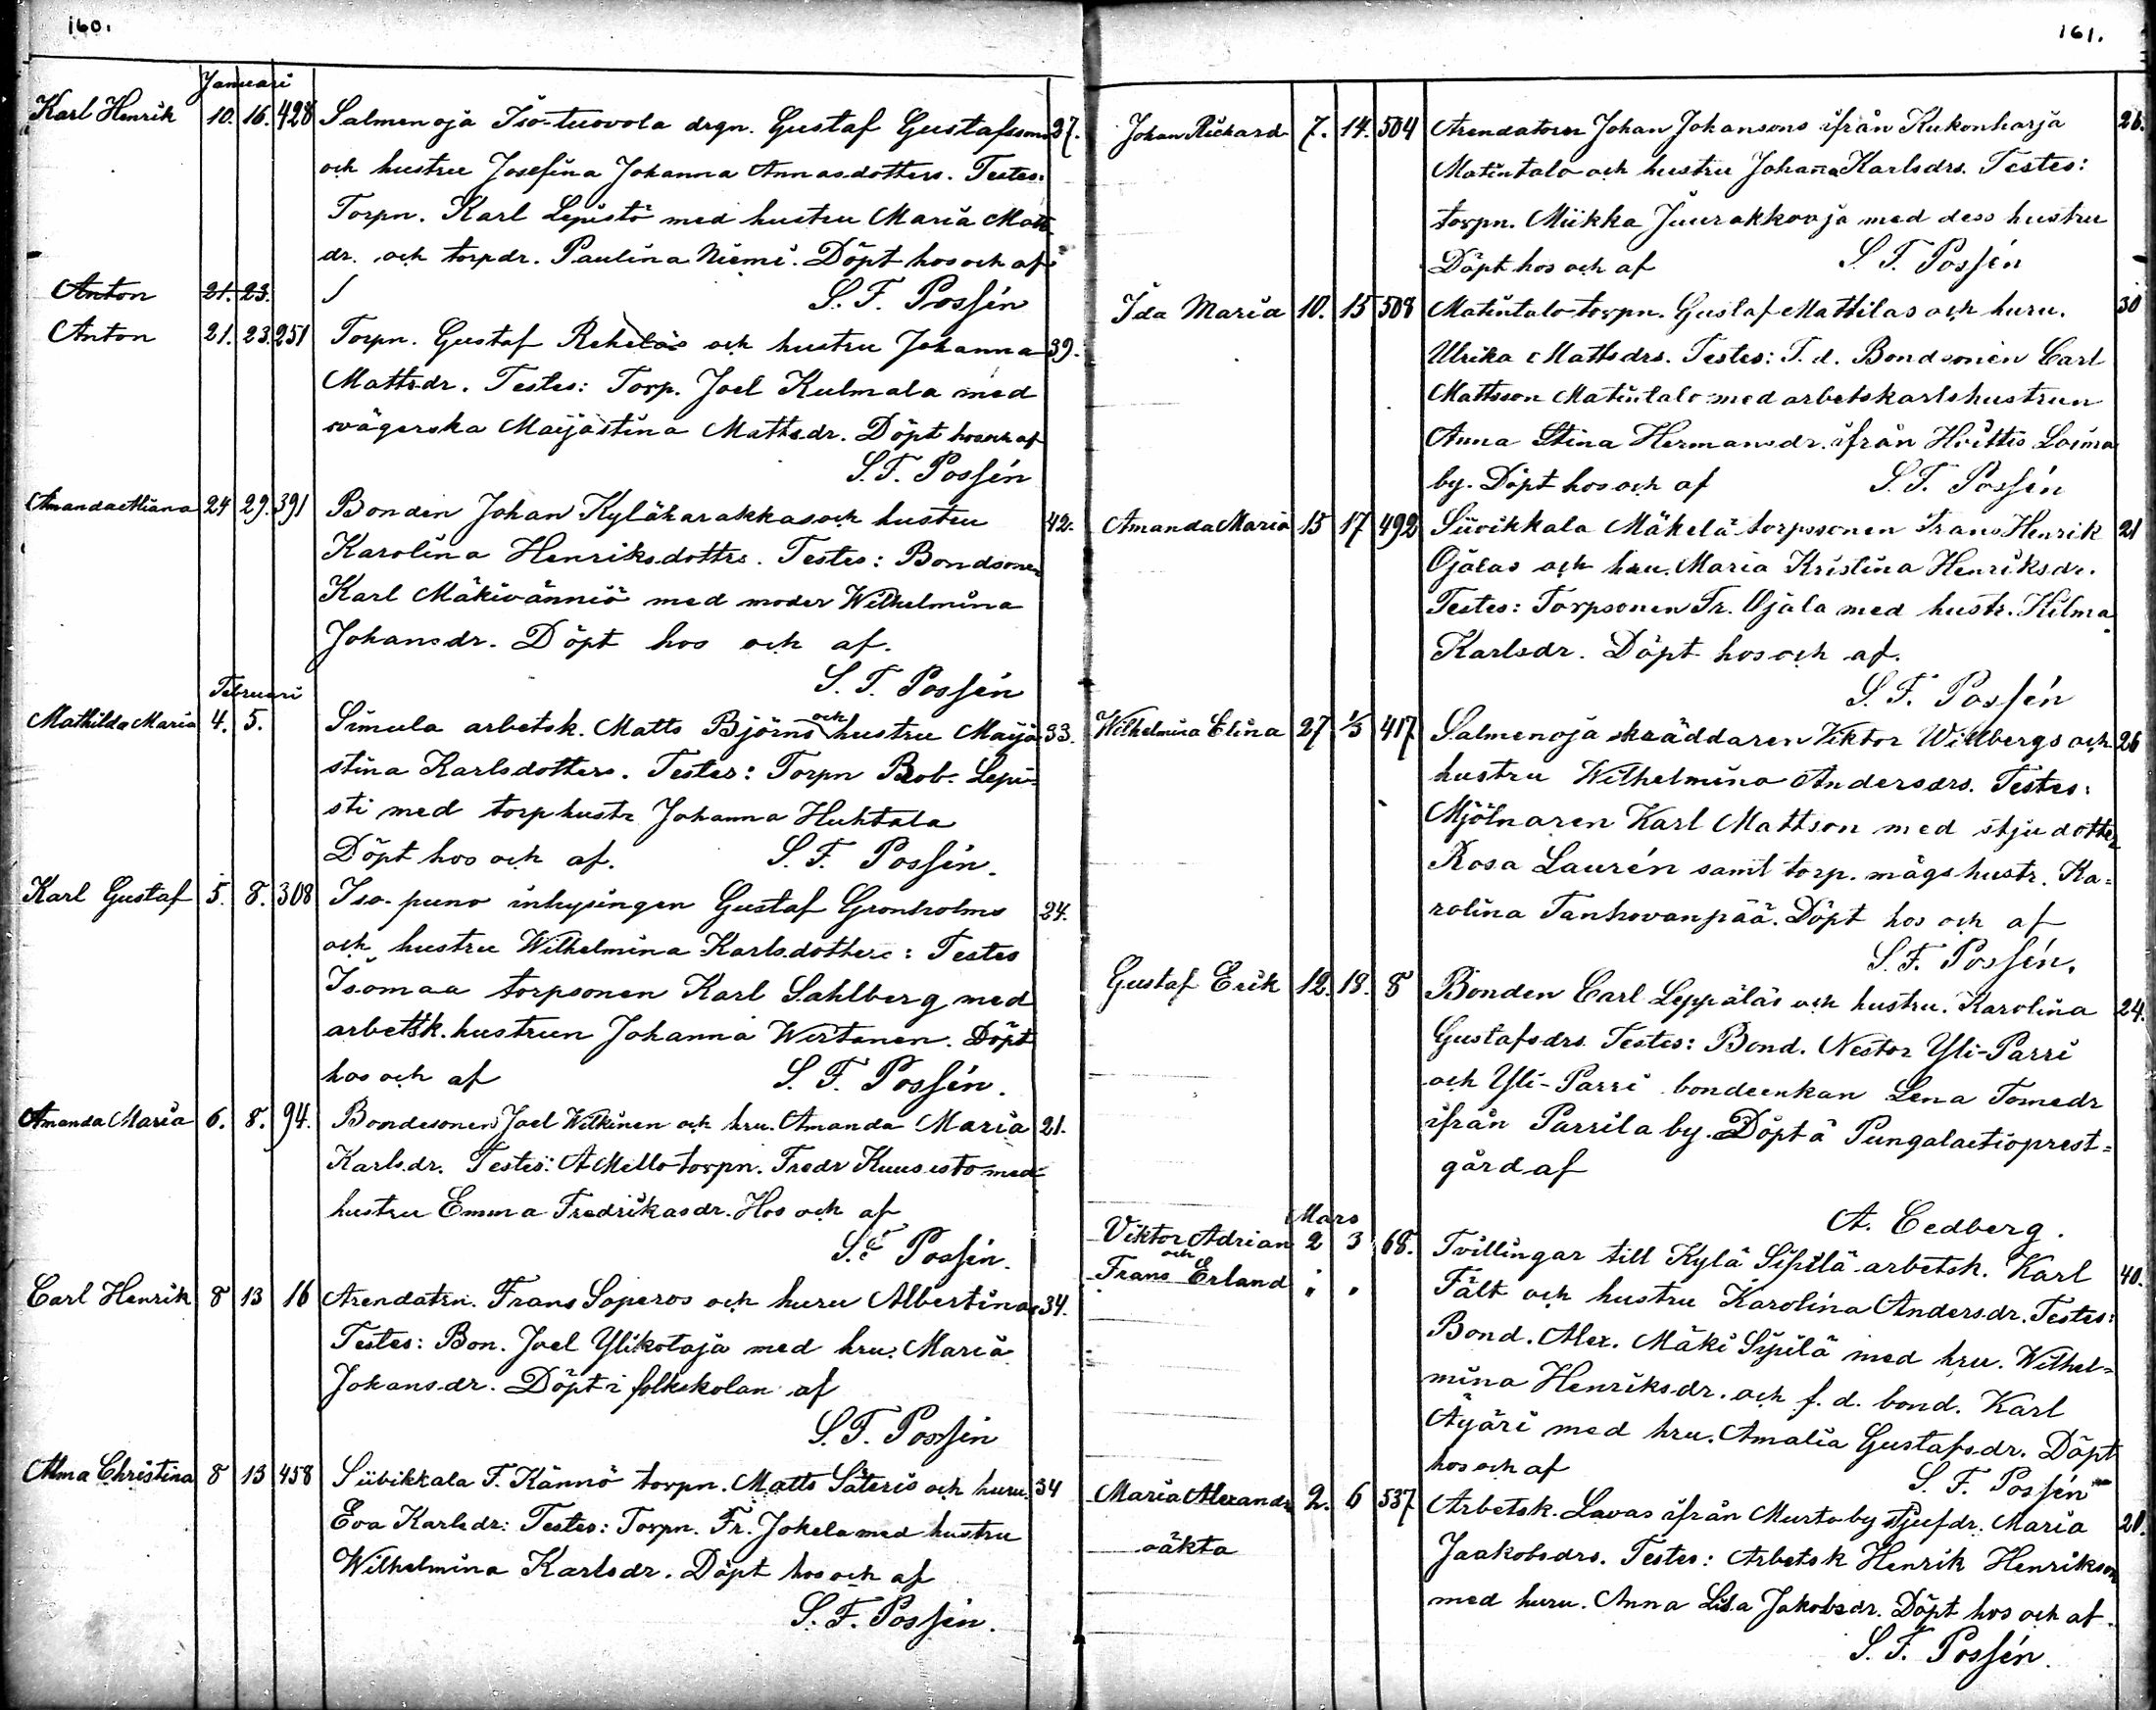 160.
Januari
Karl Henrik 10. 16. 428 Salmenoja Iso-tuovola drgn. Gustaf Gustafssons 37.
och hustru Josefina Johanna Annasdotters. Testes:
Torpn. Karl Lepistö med hustru Maria Matts
dr. och torpdr. Paulina Niemi. Döpt hos och af
Anton 21. 23. S. F. Possén
Anton 21. 23. 251 Torpn. Gustaf Rekeläs och hustru Johanna 39.
Mattsdr. Testes: Torp. Joel Kulmala med
svägerska Maijastina Mattsdr. Döpt hos och af
S. F. Possén
Amanda Miana 24 29. 391 Bonden Johan Kyläkarakkas och hustru 42.
Karolina Henriksdottrs. Testes: Bondsonen
Karl Mäkivänniö med moder Wilhelmina
Johansdr. Döpt hos och af.
S. F. Possén
Februari
Mathilda Maria 4. 5. Simula arbetsk. Matts Björns och hustru Maija 33.
stina Karlsdotters. Testes: Torpn Rob. Lepi-
sti med torphustr Johanna Huhtala
Döpt hos och af. S. F. Possén.
Karl Gustaf 5. 8. 308 Iso-puno inhysingen Gustaf Gronholms 24.
och hustru Wilhelmina Karlsdotters: Testes
Isomaa torpsonen Karl Sahlberg med
arbetsk. hustrun Johanna Wirtanen. Döpt
hos och af S. F. Possén.
Amanda Maria 6. 8. 94. Bondesonen Joel Wilkinen och hru. Amanda Maria 21.
Karlsdr. Testes: A Mello torpn. Fredr Kuusisto med
hustru Emma Fredrikasdr. Hos och af
S. F. Possén.
Carl Henrik 8 13 16 Arendatrn. Frans Soperos och huru Albertinas 34.
Testes: Bon. Joel Ylikotaja med hru. Maria
Johansdr. Döpt i folkskolan af
S. F. Possén
Alma Christina 8 13 458 Siivikkala F. Kännö torpn. Matts Säteris och huru. 34
Eva Karlsdr: Testes: Torpn. Fr. Jokela med hustru
Wilhelmina Karlsdr. Döpt hos och af
S. F. Possén.
161.
Johan Rickard 7. 14. 504 Arendatorn Johan Johansons ifrån Kukonharja 26.
Matintalo och hustru Johana Karlsdrs. Testes:
torpn. Miikka Juurakkooja med dess hustru
Döpt hos och af S. F. Possén
Ida Maria 10. 15 508 Matintalo torpn. Gustaf Mattilas och huru. 30
Ulrika Mattsdrs. Testes: F. d. Bondsonen Carl
Mattsson Matintalo med arbetskarlshustrun
Anna Stina Hermansdr. ifrån Hvittis Loima
by. Döpt hos och af S. F. Possén
Amanda Maria 15 17 492 Siivikkala Mäkelä torpssonen Frans Henrik 21
Ojalas och hru. Maria Kristina Henriksdr.
Testes: Torpsonen Fr. Ojala med hustr. Hilma
Karlsdr. Döpt hos och af.
S. F. Possén
Wilhelmina Elina 27 1/3 417 Salmenoja skräddaren Viktor Willbergs och 26
hustru Wilhelmina Andersdrs. Testes:
Mjölnaren Karl Mattson med stjudotter
Rosa Laurén samt torp. mågs hustr. Ka-
rolina Tanhovanpää. Döpt hos och af
S. F. Possén.
Gustaf Erik 12. 18. 8 Bonden Carl Leppäläs och hustru. Karolina 24.
Gustafsdrs. Testes: Bond. Nestor Yli-Parri
och Yli-Parri bondeenkan Lena Tomedr
ifrån Parrila by. Döpt å Pungalaetioprest-
gård af
A. Cedberg.
Mars
Viktor Adrian 2 3 68. Tvillingar till Kylä Sipilä arbetsk. Karl 40.
och
Frans Erland Fält och hustru Karolina Andersdr. Testes:
Bond. Alex. Mäki Sipilä med hru. Wilhel-
mina Henriksdr. och f. d. bond. Karl
Äyäri med hru. Amalia Gustafsdr. Döpt
hos och af S. F. Possén
Maria Alexandr 2. 6 537 Arbetsk. Lavas ifrån Murto by stjufdr. Maria 20.
oäkta Jaakobsdrs. Testes: Arbetsk Henrik Henrikson
med huru. Anna Lisa Jakobsdr. Döpt hos och af.
S. F. Possén.